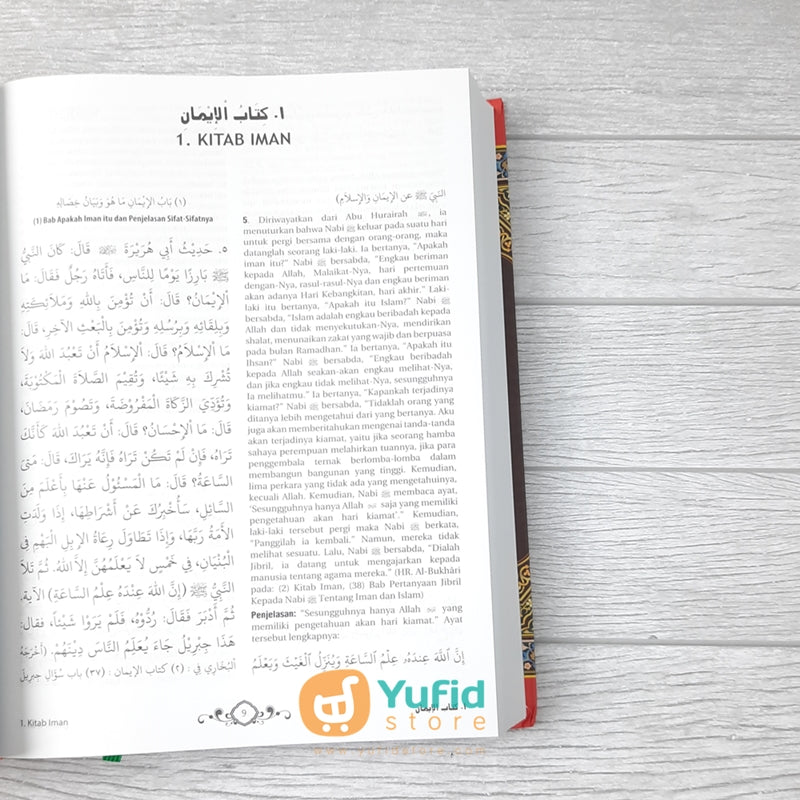 ١. كِتَابُ الْإِيْمَانِ
1. KITAB IMAN
(١) بَابُ الْإِيْمَانِ مَا هُوَ وَبَيَانُ خِصَالِهِ
(1) Bab Apakah Iman itu dan Penjelasan Sifat-Sifatnya
٥. حَدِيْثُ أَبِي هُرَيْرَةَ ﷺ قَالَ: كَانَ النَّبِيُّ
ﷺ بَارِزًا يَوْمًا لِلنَّاسِ، فَأَتَاهُ رَجُلٌ فَقَالَ: مَا
الْإِيْمَانُ؟ قَالَ: أَنْ تُؤْمِنَ بِاللهِ وَمَلَائِكَتِهِ
وَبِلِقَائِهِ وَبِرُسُلِهِ وَتُؤْمِنَ بِالْبَعْثِ الْآخِرِ، قَالَ:
مَا الْإِسْلَامُ؟ قَالَ: الْإِسْلَامُ أَنْ تَعْبُدَ اللهَ وَلَا
تُشْرِكَ بِهِ شَيْئًا، وَتُقِيْمَ الصَّلَاةَ الْمَكْتُوْبَةَ،
وَتُؤَدِّيَ الزَّكَاةَ الْمَفْرُوْضَةَ، وَتَصُوْمَ رَمَضَانَ،
قَالَ: مَا الْإِحْسَانُ؟ قَالَ: أَنْ تَعْبُدَ اللهَ كَأَنَّكَ
تَرَاهُ، فَإِنْ لَمْ تَكُنْ تَرَاهُ فَإِنَّهُ يَرَاكَ، قَالَ: مَتَى
السَّاعَةُ؟ قَالَ: مَا الْمَسْئُوْلُ عَنْهَا بِأَعْلَمَ مِنَ
السَّائِلِ، سَأُخْبِرُكَ عَنْ أَشْرَاطِهَا، إِذَا وَلَدَتِ
الْأَمَةُ رَبَّهَا، وَإِذَا تَطَاوَلَ رِعَاةُ الْإِبِلِ الْبَهْمِ فِي
الْبُنْيَانِ، فِي خَمْسٍ لَا يَعْلَمُهُنَّ إِلَّا اللهُ. ثُمَّ تَلَا
النَّبِيُّ ﷺ (إِنَّ اللهَ عِنْدَهُ عِلْمُ السَّاعَةِ) الْآيَة.
ثُمَّ أَدْبَرَ فَقَالَ: رُدُّوْهُ، فَلَمْ يَرَوْا شَيْئًا، فقال:
هَذَا جِبْرِيْلُ جَاءَ يُعَلِّمُ النَّاسَ دِيْنَهُمْ. (أَخْرَجَهُ
الْبُخَارِي فِي: (٢) كتاب الإيمان: (٣٧) باب سُؤَالِ جِبْرِيْلَ
النَّبِيَّ ﷺ عَنِ الْإِيْمَانِ وَالْإِسْلَامِ)
5. Diriwayatkan dari Abu Hurairah, ia
menuturkan bahwa Nabi ﷺ keluar pada suatu hari
untuk pergi bersama dengan orang-orang, maka
datanglah seorang laki-laki. Ia bertanya, "Apakah
iman itu?" Nabi ﷺ bersabda, "Engkau beriman
kepada Allah, Malaikat-Nya, hari pertemuan
dengan-Nya, rasul-rasul-Nya dan engkau beriman
akan adanya Hari Kebangkitan, hari akhir." Laki-
laki itu bertanya, "Apakah itu Islam?" Nabi ﷺ
bersabda, "Islam adalah engkau beribadah kepada
Allah dan tidak menyekutukan-Nya, mendirikan
shalat, menunaikan zakat yang wajib dan berpuasa
pada bulan Ramadhan." Ia bertanya, "Apakah itu
Ihsan?" Nabi ﷺ bersabda, "Engkau beribadah
kepada Allah seakan-akan engkau melihat-Nya,
dan jika engkau tidak melihat-Nya, sesungguhnya
Ia melihatmu." Ia bertanya, "Kapankah terjadinya
kiamat?" Nabi ﷺ bersabda, "Tidaklah orang yang
ditanya lebih mengetahui dari yang bertanya. Aku
juga akan memberitahukan mengenai tanda-tanda
akan terjadinya kiamat, yaitu jika seorang hamba
sahaya perempuan melahirkan tuannya, jika para
penggembala ternak berlomba-lomba dalam
membangun bangunan yang tinggi. Kemudian,
lima perkara yang tidak ada yang mengetahuinya,
kecuali Allah. Kemudian, Nabi ﷺ membaca ayat,
'Sesungguhnya hanya Allah saja yang memiliki
pengetahuan akan hari kiamat'." Kemudian,
laki-laki tersebut pergi maka Nabi ﷺ berkata,
"Panggilah ia kembali." Namun, mereka tidak
melihat sesuatu. Lalu, Nabi ﷺ bersabda, "Dialah
Jibril, ia datang untuk mengajarkan kepada
manusia tentang agama mereka." (HR. Al-Bukhâri
pada: (2) Kitab Iman, (38) Bab Pertanyaan Jibril
Kepada Nabi ﷺ Tentang Iman dan Islam)
Penjelasan: "Sesungguhnya hanya Allah yang
memiliki pengetahuan akan hari kiamat." Ayat
tersebut lengkapnya:
إِنَّ اللَّهَ عِندَهُ عِلْمُ السَّاعَةِ وَيُنَزِّلُ الْغَيْثَ وَيَعْلَمُ
1. Kitab Iman
9
١. كتاب الإيمان
Yufid
store
www.yufidstore.com